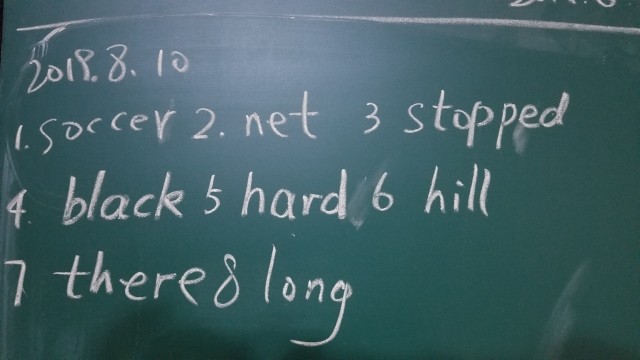 2019.8.10
1. soccer 2. net 3 stopped
4. black 5 hard 6 hill
7 there 8 long